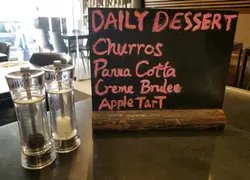 DAILY DESSERT
Churros
Panna Cotta
Creme Brulee
Apple Tart